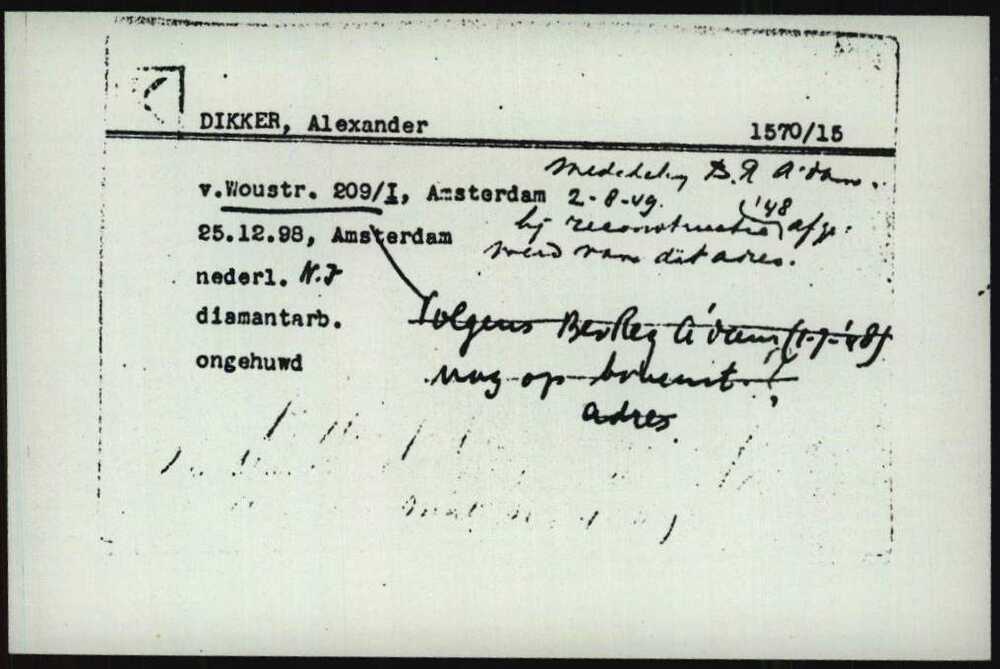 DIKKER, Alexander 1570/15
v.Woustr. 209/I, Amsterdam
25.12.98, Amsterdam
nederl. N.I
diamantarb.
ongehuwd
B.R A'dam.
2-8-49.
bij reconstructie '48 afge:
van dit adres.
Volgens BevReg A'dam (1-7-'48)
nog op bovenst.
adres.